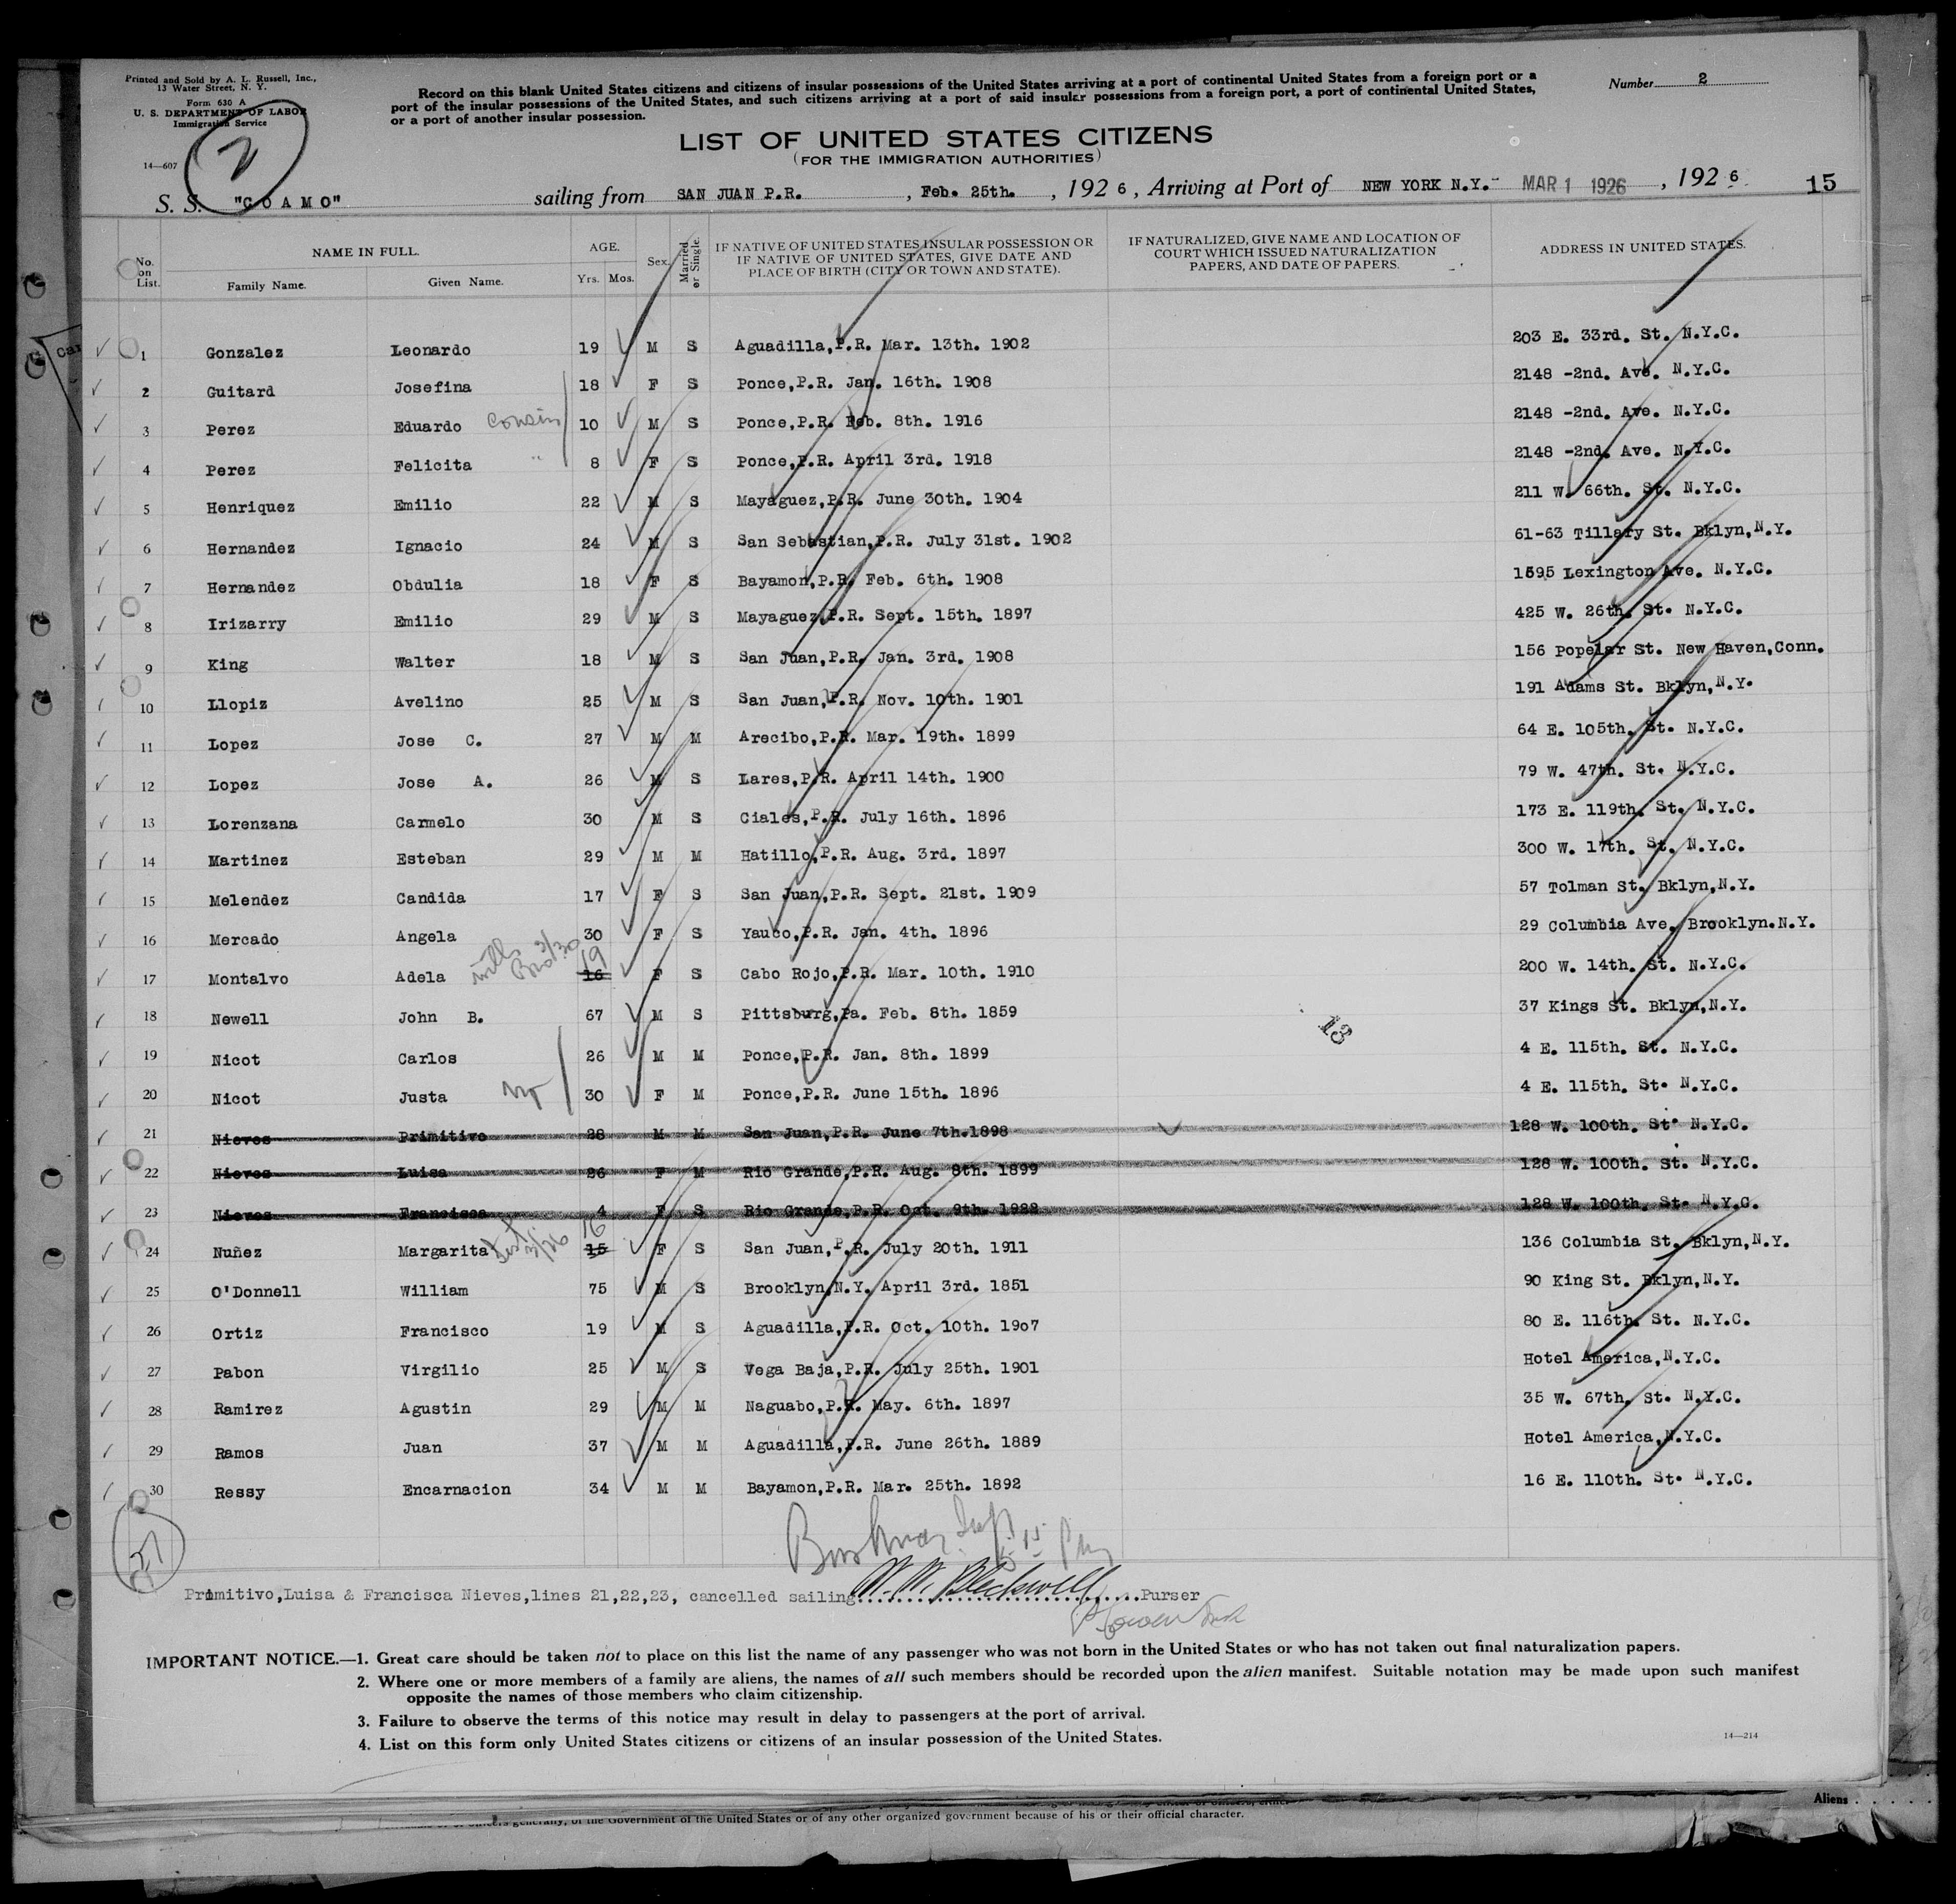 Printed and Sold by A. L. Russell, Inc.,
13 Water Street, N. Y.
Form 630 A
U. S. DEPARTMENT OF LABOR
Immigration Service
14—607
2
Record on this blank United States citizens and citizens of insular possessions of the United States arriving at a port of continental United States from a foreign port or a
port of the insular possessions of the United States, and such citizens arriving at a port of said insular possessions from a foreign port, a port of continental United States,
or a port of another insular possession.
Number 2
LIST OF UNITED STATES CITIZENS
(FOR THE IMMIGRATION AUTHORITIES)
S. S. "COAMO" sailing from SAN JUAN P.R. , Feb. 25th. , 1926 , Arriving at Port of NEW YORK N.Y. MAR 1 1926 , 1926 15
No. on List. NAME IN FULL. Family Name. Given Name. AGE. Yrs. Mos. Sex. Married or Single. IF NATIVE OF UNITED STATES INSULAR POSSESSION OR IF NATIVE OF UNITED STATES, GIVE DATE AND PLACE OF BIRTH (CITY OR TOWN AND STATE). IF NATURALIZED, GIVE NAME AND LOCATION OF COURT WHICH ISSUED NATURALIZATION PAPERS, AND DATE OF PAPERS. ADDRESS IN UNITED STATES.
1 Gonzalez Leonardo 19 M S Aguadilla,P.R. Mar. 13th. 1902 203 E. 33rd. St. N.Y.C.
2 Guitard Josefina 18 F S Ponce,P.R. Jan. 16th. 1908 2148 -2nd. Ave. N.Y.C.
3 Perez Eduardo Cousin 10 M S Ponce,P.R. Feb. 8th. 1916 2148 -2nd. Ave. N.Y.C.
4 Perez Felicita " 8 F S Ponce,P.R. April 3rd. 1918 2148 -2nd. Ave. N.Y.C.
5 Henriquez Emilio 22 M S Mayaguez,P.R. June 30th. 1904 211 W. 66th. St. N.Y.C.
6 Hernandez Ignacio 24 M S San Sebastian,P.R. July 31st. 1902 61-63 Tillary St. Bklyn,N.Y.
7 Hernandez Obdulia 18 F S Bayamon,P.R. Feb. 6th. 1908 1595 Lexington Ave. N.Y.C.
8 Irizarry Emilio 29 M S Mayaguez,P.R. Sept. 15th. 1897 425 W. 26th. St. N.Y.C.
9 King Walter 18 M S San Juan,P.R. Jan. 3rd. 1908 156 Popelar St. New Haven,Conn.
10 Llopiz Avelino 25 M S San Juan,P.R. Nov. 10th. 1901 191 Adams St. Bklyn,N.Y.
11 Lopez Jose C. 27 M M Arecibo,P.R. Mar. 19th. 1899 64 E. 105th. St. N.Y.C.
12 Lopez Jose A. 26 M S Lares,P.R. April 14th. 1900 79 W. 47th. St. N.Y.C.
13 Lorenzana Carmelo 30 M S Ciales,P.R. July 16th. 1896 173 E. 119th. St. N.Y.C.
14 Martinez Esteban 29 M M Hatillo,P.R. Aug. 3rd. 1897 300 W. 17th. St. N.Y.C.
15 Melendez Candida 17 F S San Juan,P.R. Sept. 21st. 1909 57 Tolman St. Bklyn,N.Y.
16 Mercado Angela 30 F S Yauco,P.R. Jan. 4th. 1896 29 Columbia Ave. Brooklyn.N.Y.
17 Montalvo Adela 16 19 F S Cabo Rojo,P.R. Mar. 10th. 1910 200 W. 14th. St. N.Y.C.
18 Newell John B. 67 M S Pittsburg,Pa. Feb. 8th. 1859 37 Kings St. Bklyn,N.Y.
13
19 Nicot Carlos 26 M M Ponce,P.R. Jan. 8th. 1899 4 E. 115th. St. N.Y.C.
20 Nicot Justa 30 F M Ponce,P.R. June 15th. 1896 4 E. 115th. St. N.Y.C.
21 Nieves Primitivo 28 M M San Juan,P.R. June 7th.1898 128 W. 100th. St. N.Y.C.
22 Nieves Luisa 26 F M Rio Grande,P.R. Aug. 8th. 1899 128 W. 100th. St. N.Y.C.
23 Nieves Francisca 4 F S Rio Grande,P.R. Oct. 9th. 1922 128 W. 100th. St. N.Y.C.
24 Nuñez Margarita 15 16 F S San Juan,P.R. July 20th. 1911 136 Columbia St. Bklyn,N.Y.
25 O'Donnell William 75 M S Brooklyn,N.Y. April 3rd. 1851 90 King St. Bklyn,N.Y.
26 Ortiz Francisco 19 M S Aguadilla,P.R. Oct. 10th. 1907 80 E. 116th. St. N.Y.C.
27 Pabon Virgilio 25 M S Vega Baja,P.R. July 25th. 1901 Hotel America,N.Y.C.
28 Ramirez Agustin 29 M M Naguabo,P.R. May. 6th. 1897 35 W. 67th. St. N.Y.C.
29 Ramos Juan 37 M M Aguadilla,P.R. June 26th. 1889 Hotel America,N.Y.C.
30 Ressy Encarnacion 34 M M Bayamon,P.R. Mar. 25th. 1892 16 E. 110th. St. N.Y.C.
27
Primitivo,Luisa & Francisca Nieves,lines 21,22,23, cancelled sailing. W. W. Bleckwell Purser
IMPORTANT NOTICE.—1. Great care should be taken not to place on this list the name of any passenger who was not born in the United States or who has not taken out final naturalization papers.
2. Where one or more members of a family are aliens, the names of all such members should be recorded upon the alien manifest. Suitable notation may be made upon such manifest
opposite the names of those members who claim citizenship.
3. Failure to observe the terms of this notice may result in delay to passengers at the port of arrival.
4. List on this form only United States citizens or citizens of an insular possession of the United States.
14—214
Aliens
generally, of the Government of the United States or of any other organized government because of his or their official character.